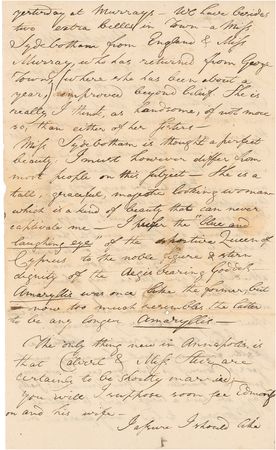 yesterday at Murrays - We have besides
two extra belles in town a Miss
Sydebotham from England & Miss
Murray who has returned from George
Town (where she has been about a
year) improved beyond belief. She is
really I think, as handsome, if not more
so, than either of her sisters -
Miss Sydebotham is thought a perfect
beauty. I must however differ from
most people on this subject - She is a
tall, graceful, majestic looking woman
which is a kind of beauty that can never
captivate me - I prefer the "blue and
laughing eye" of the sportive Queen of
Cyprus to the noble figure & stern
dignity of the Aegis bearing Goddess
Amaryllis was once like the former, but
now too much resembles the latter
to be any longer Amaryllis -
The only thing new in Annapolis is
that Calvert & Miss are
certainly to be shortly married
You will I suppose soon see
on and his wife -
I assure I should like